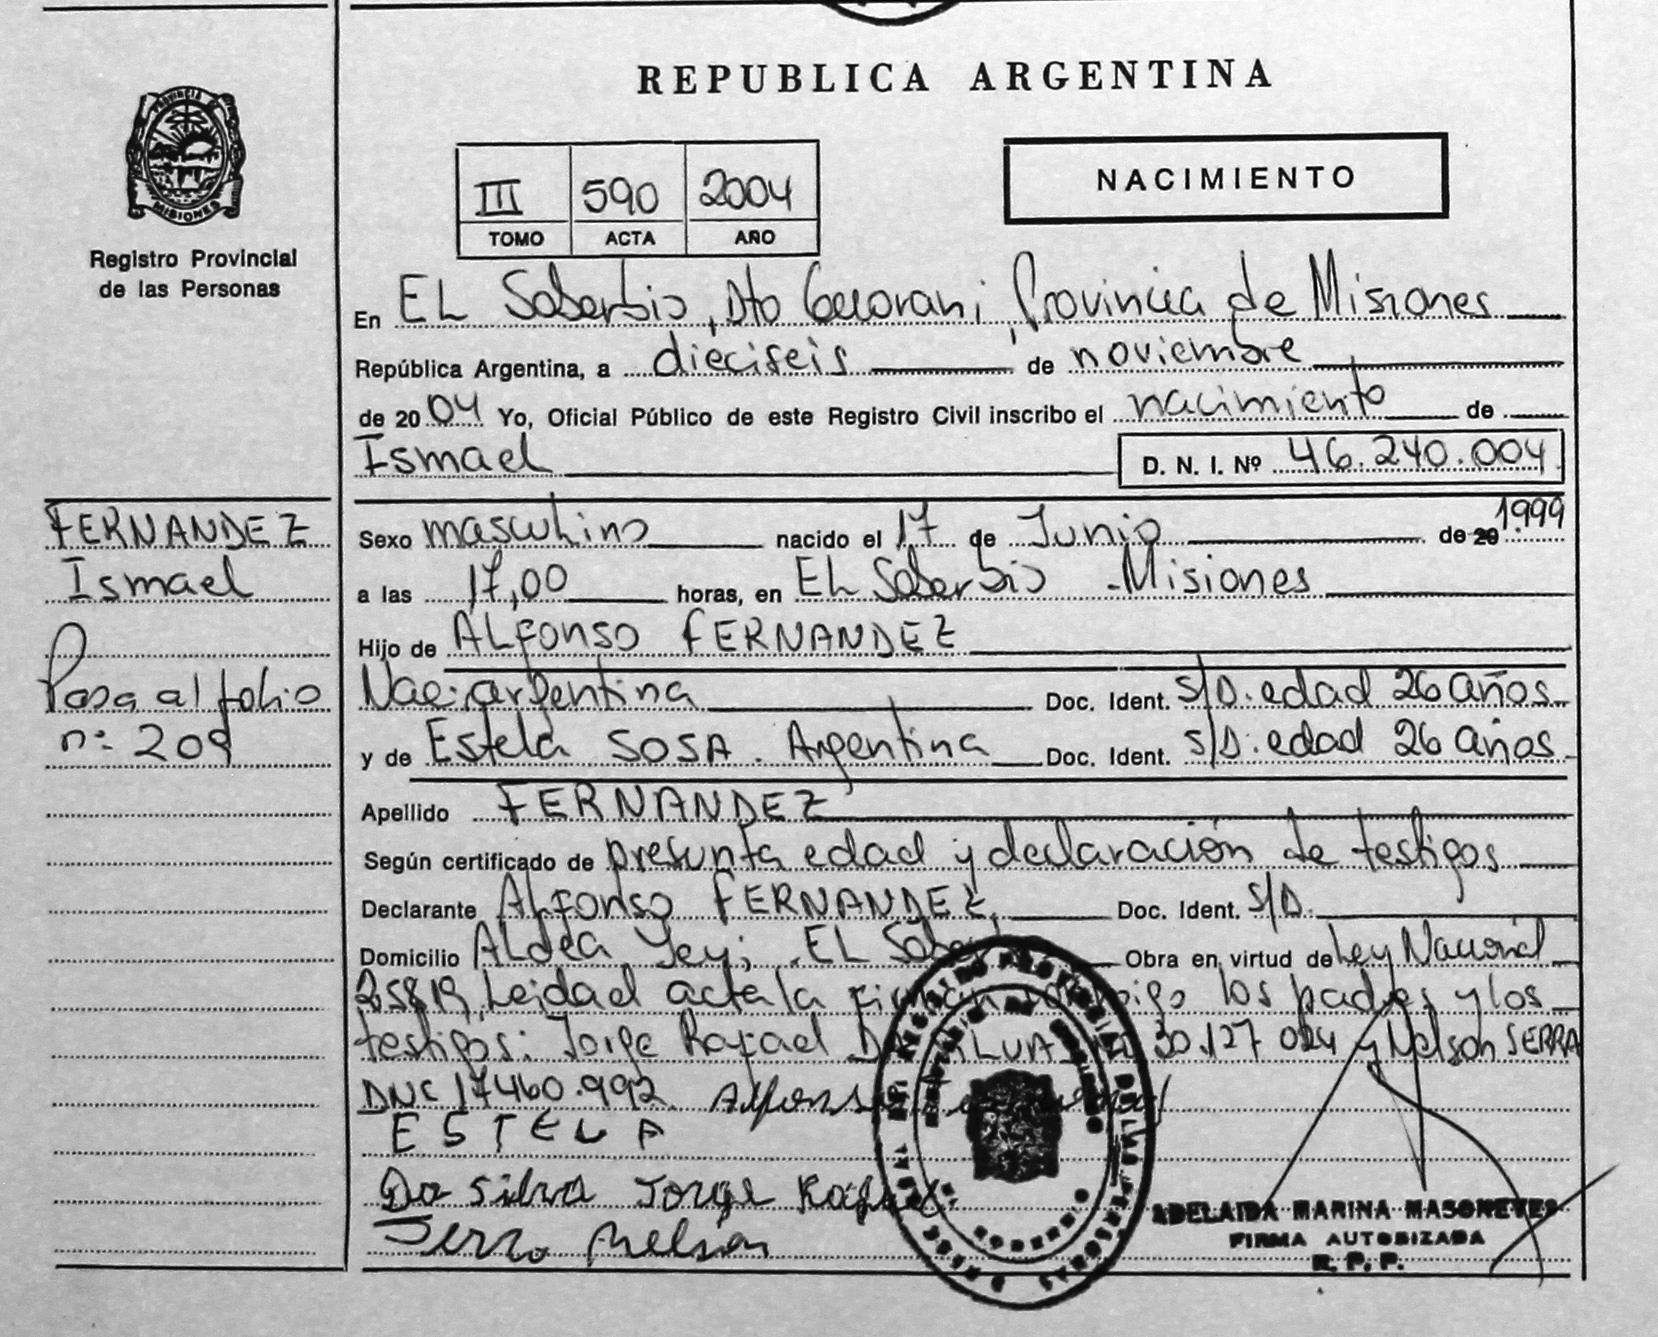 REPUBLICA ARGENTINA
PROVINCIA DE
MISIONES
Registro Provincial
de las Personas
III 590 2004
TOMO ACTA AÑO
NACIMIENTO
En EL Soberbio, Dto Guarani Provincia de Misiones
República Argentina, a dieciseis de noviembre
de 2004 Yo, Oficial Público de este Registro Civil inscribo el nacimiento de
Ismael D. N. I. Nº 46.240.004
FERNANDEZ
Ismael
Pasa al folio
nº 209
Sexo masculino nacido el 17 de Junio de 20 1999
a las 17,00 horas, en EL Soberbio - Misiones
Hijo de ALFonso FERNANDEZ
Nac: argentina Doc. Ident. S/D. edad 26 años
y de Estela SOSA. Argentina Doc. Ident. S/D. edad 26 años
Apellido FERNANDEZ
Según certificado de presunta edad y declaración de testigos
Declarante ALFonso FERNANDEZ Doc. Ident. S/D.
Domicilio ALdea Yeyi, EL Obra en virtud de Ley Nacional
25819, Leidad acta la los padres y los
testigos: Jorge Rafael 30.127 024 y Nelson SERRA
DNI 17460.992 Alfonso
ESTELA
Da Silva Jorge Rafael
Serra Nelson
ADELAIDA MARINA MASONEYES
FIRMA AUTORIZADA
R. P. P.